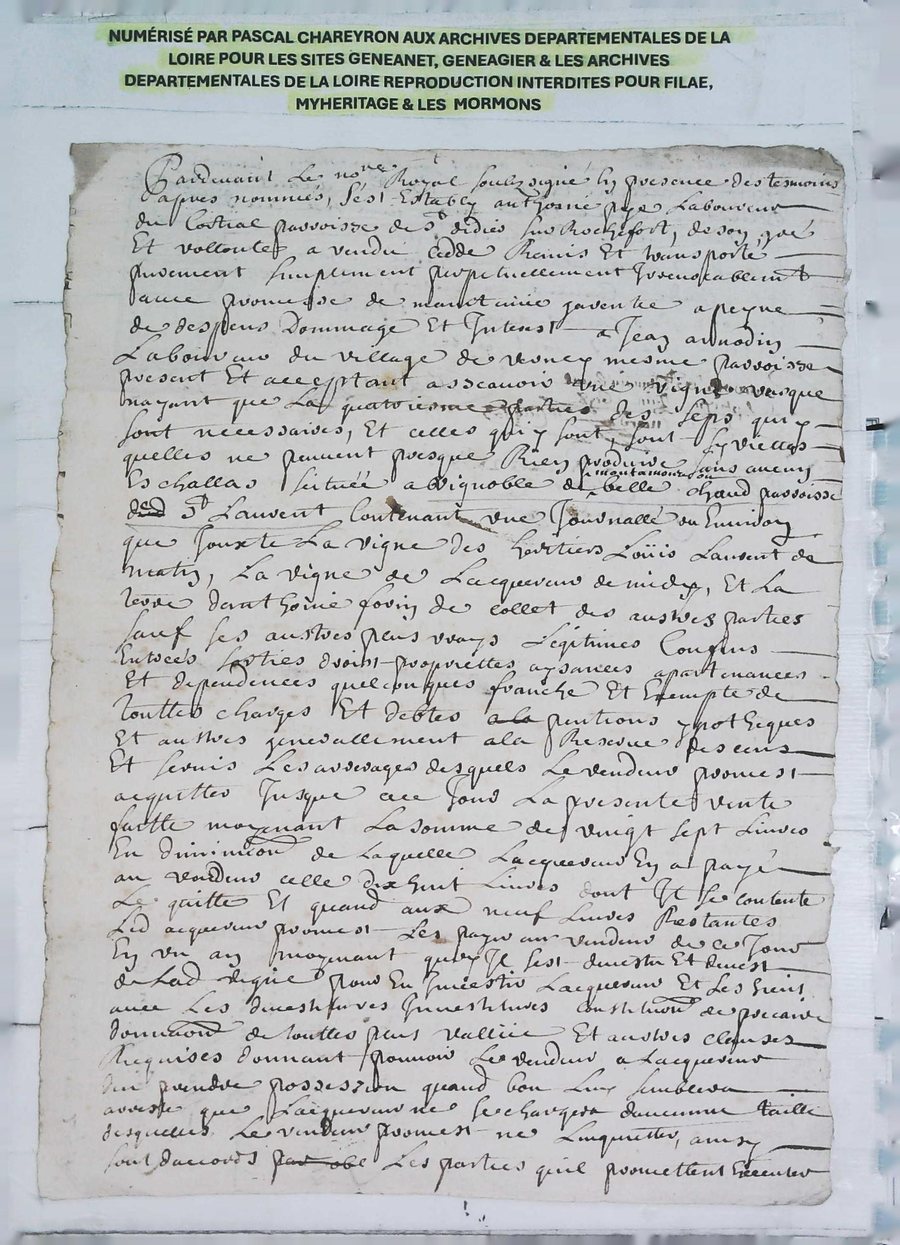 NUMÉRISÉ PAR PASCAL CHAREYRON AUX ARCHIVES DEPARTEMENTALES DE LA
LOIRE POUR LES SITES GENEANET, GENEAGIER & LES ARCHIVES
DEPARTEMENTALES DE LA LOIRE REPRODUCTION INTERDITES POUR FILAE,
MYHERITAGE & LES MORMONS
Pardevant Le no.re Royal soubzsigné En presence des tesmoins
apres nommés, s'est Estably anthoine Laboureur
du Cottial parroisse de st didier sur Rochefort, de son gré
Et vollonté a vendu cedde Remis Et transporté
purement simplement perpetuellement Irrevocablement
avec promesse de maintenir garentie a peyne
de despens Dommage Et Interest a Jean arnodin
Laboureur du village de mesme parroisse
present Et acceptant asscavoir une vigne vasque
nayant que La quatorisme parties des seps qui y
sont necessaires, Et celles qui y sont, sont sy vieilles
quelles ne peuvent presque Rien produire sans aucun
montamourdou
Eschallas scituée a vignoble de belle chaud parroisse
de st Laurent Contenant une Journallé ou Environ
que Jouxte La vigne des heritiers Loüis Laurent de
matin, La vigne de Lacquereur de midy, Et La
terre danthoine forin de collet des austres parties
sauf ses austres plus vrays Legitimes Confins
Entrées sorties droist proprietés aysances apartenances
Et dependences quelconques franche Et Exempte de
touttes charges Et debtes a la pentions ypotheques
Et austres generallement a la Reserve des cens
Et servis Les arrerages desquels Le vendeur promest
acquitter Jusque a ce Jour La presente vente
faitte moyenant La somme de vingt sept Livres
En diminution de Laquelle Lacquereur En a payé
au vendeur celle dix huit Livres dont Il se contente
Le quitte Et quand aux neuf Livres Restantes
Led acquereur promest Les payer au vendeur de ce Jour
En un an moyenant quoy Il sest devestu Et devest
de Lad vigne pour En Investir Lacquereur Et Les siens
avec Les devestitures Investitures constitution de precaire
donnation de touttes plus vallüe Et austres clauses
Requises donnant pouvoir Le vendeur a Lacquereur
den prendre possession quand bon Luy semblera
arreste que Lacquereur ne se chargera daucunne taille
desquelles Le vendeur promest ne Linquietter, ainsy
sont daccords par obe Les parties quil promettent Executer